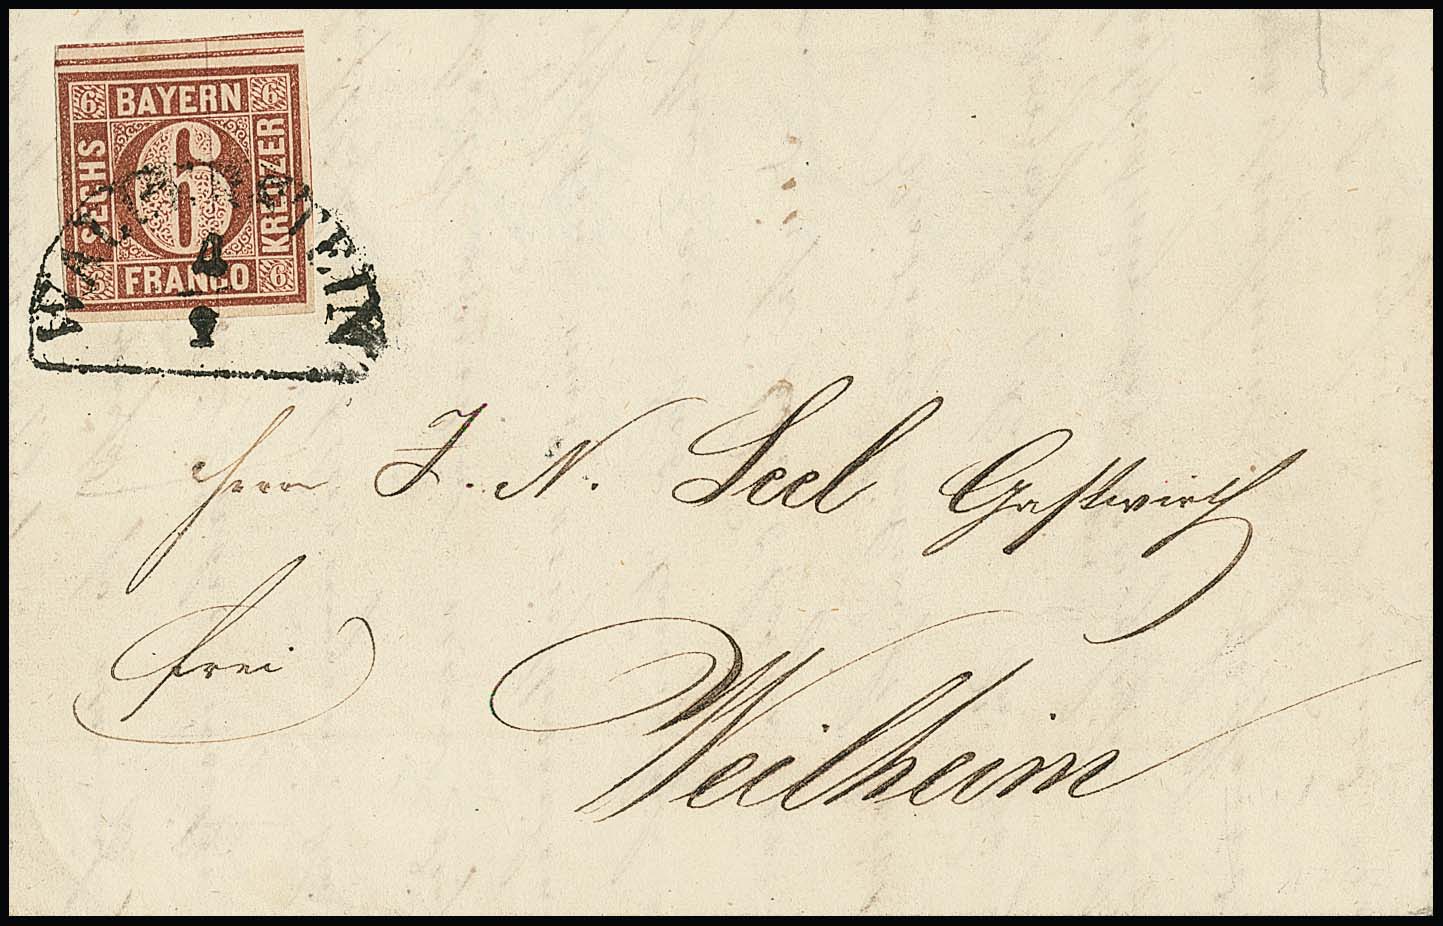 6 BAYERN 6
SECHS 6 KREUZER
6 FRANCO 6
4
1
Herrn J. N. Seel Gastwirth
frei
Weilheim